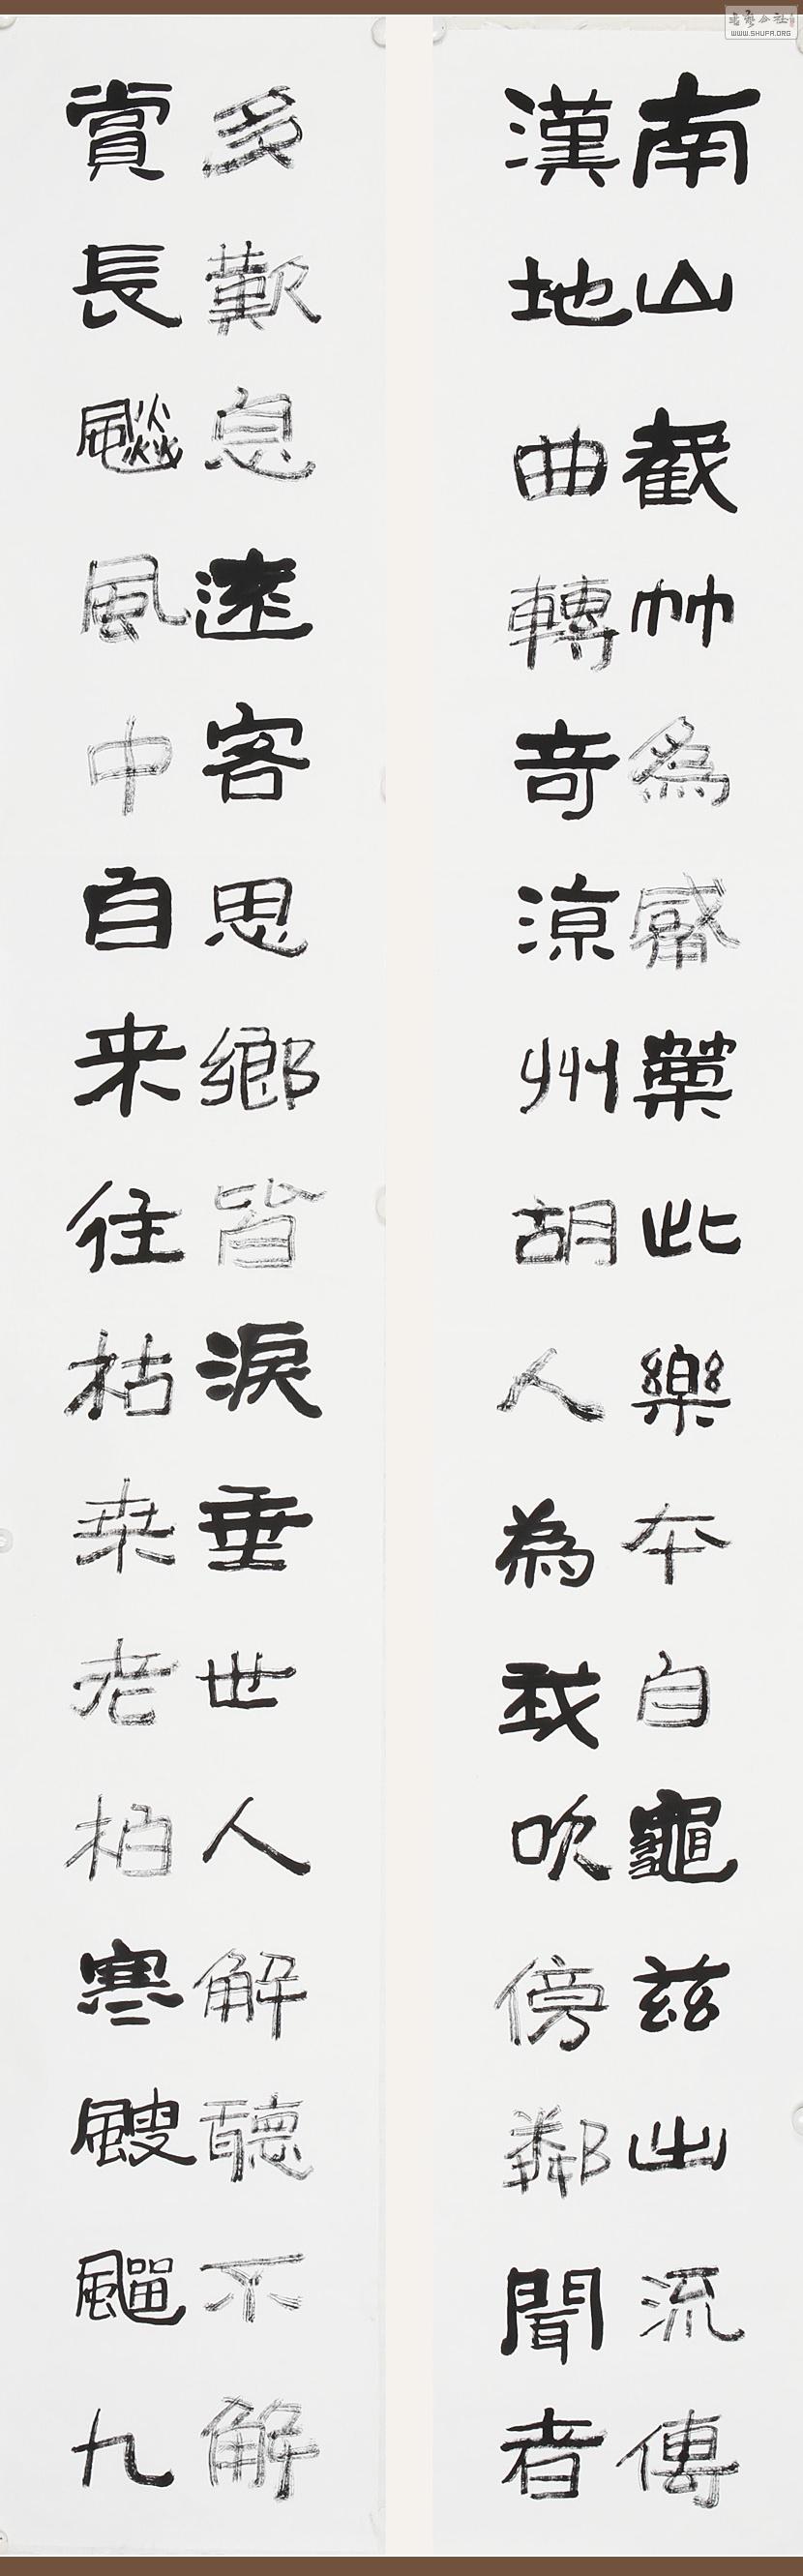 南山截竹為觱篥此樂本自龜茲出流傳
漢地曲轉奇涼州胡人為我吹傍鄰聞者
多歎息遠客思鄉皆淚垂世人解聽不解
賞長飇風中自来往枯桒老柏寒颼飀九
WWW.SHUFA.ORG